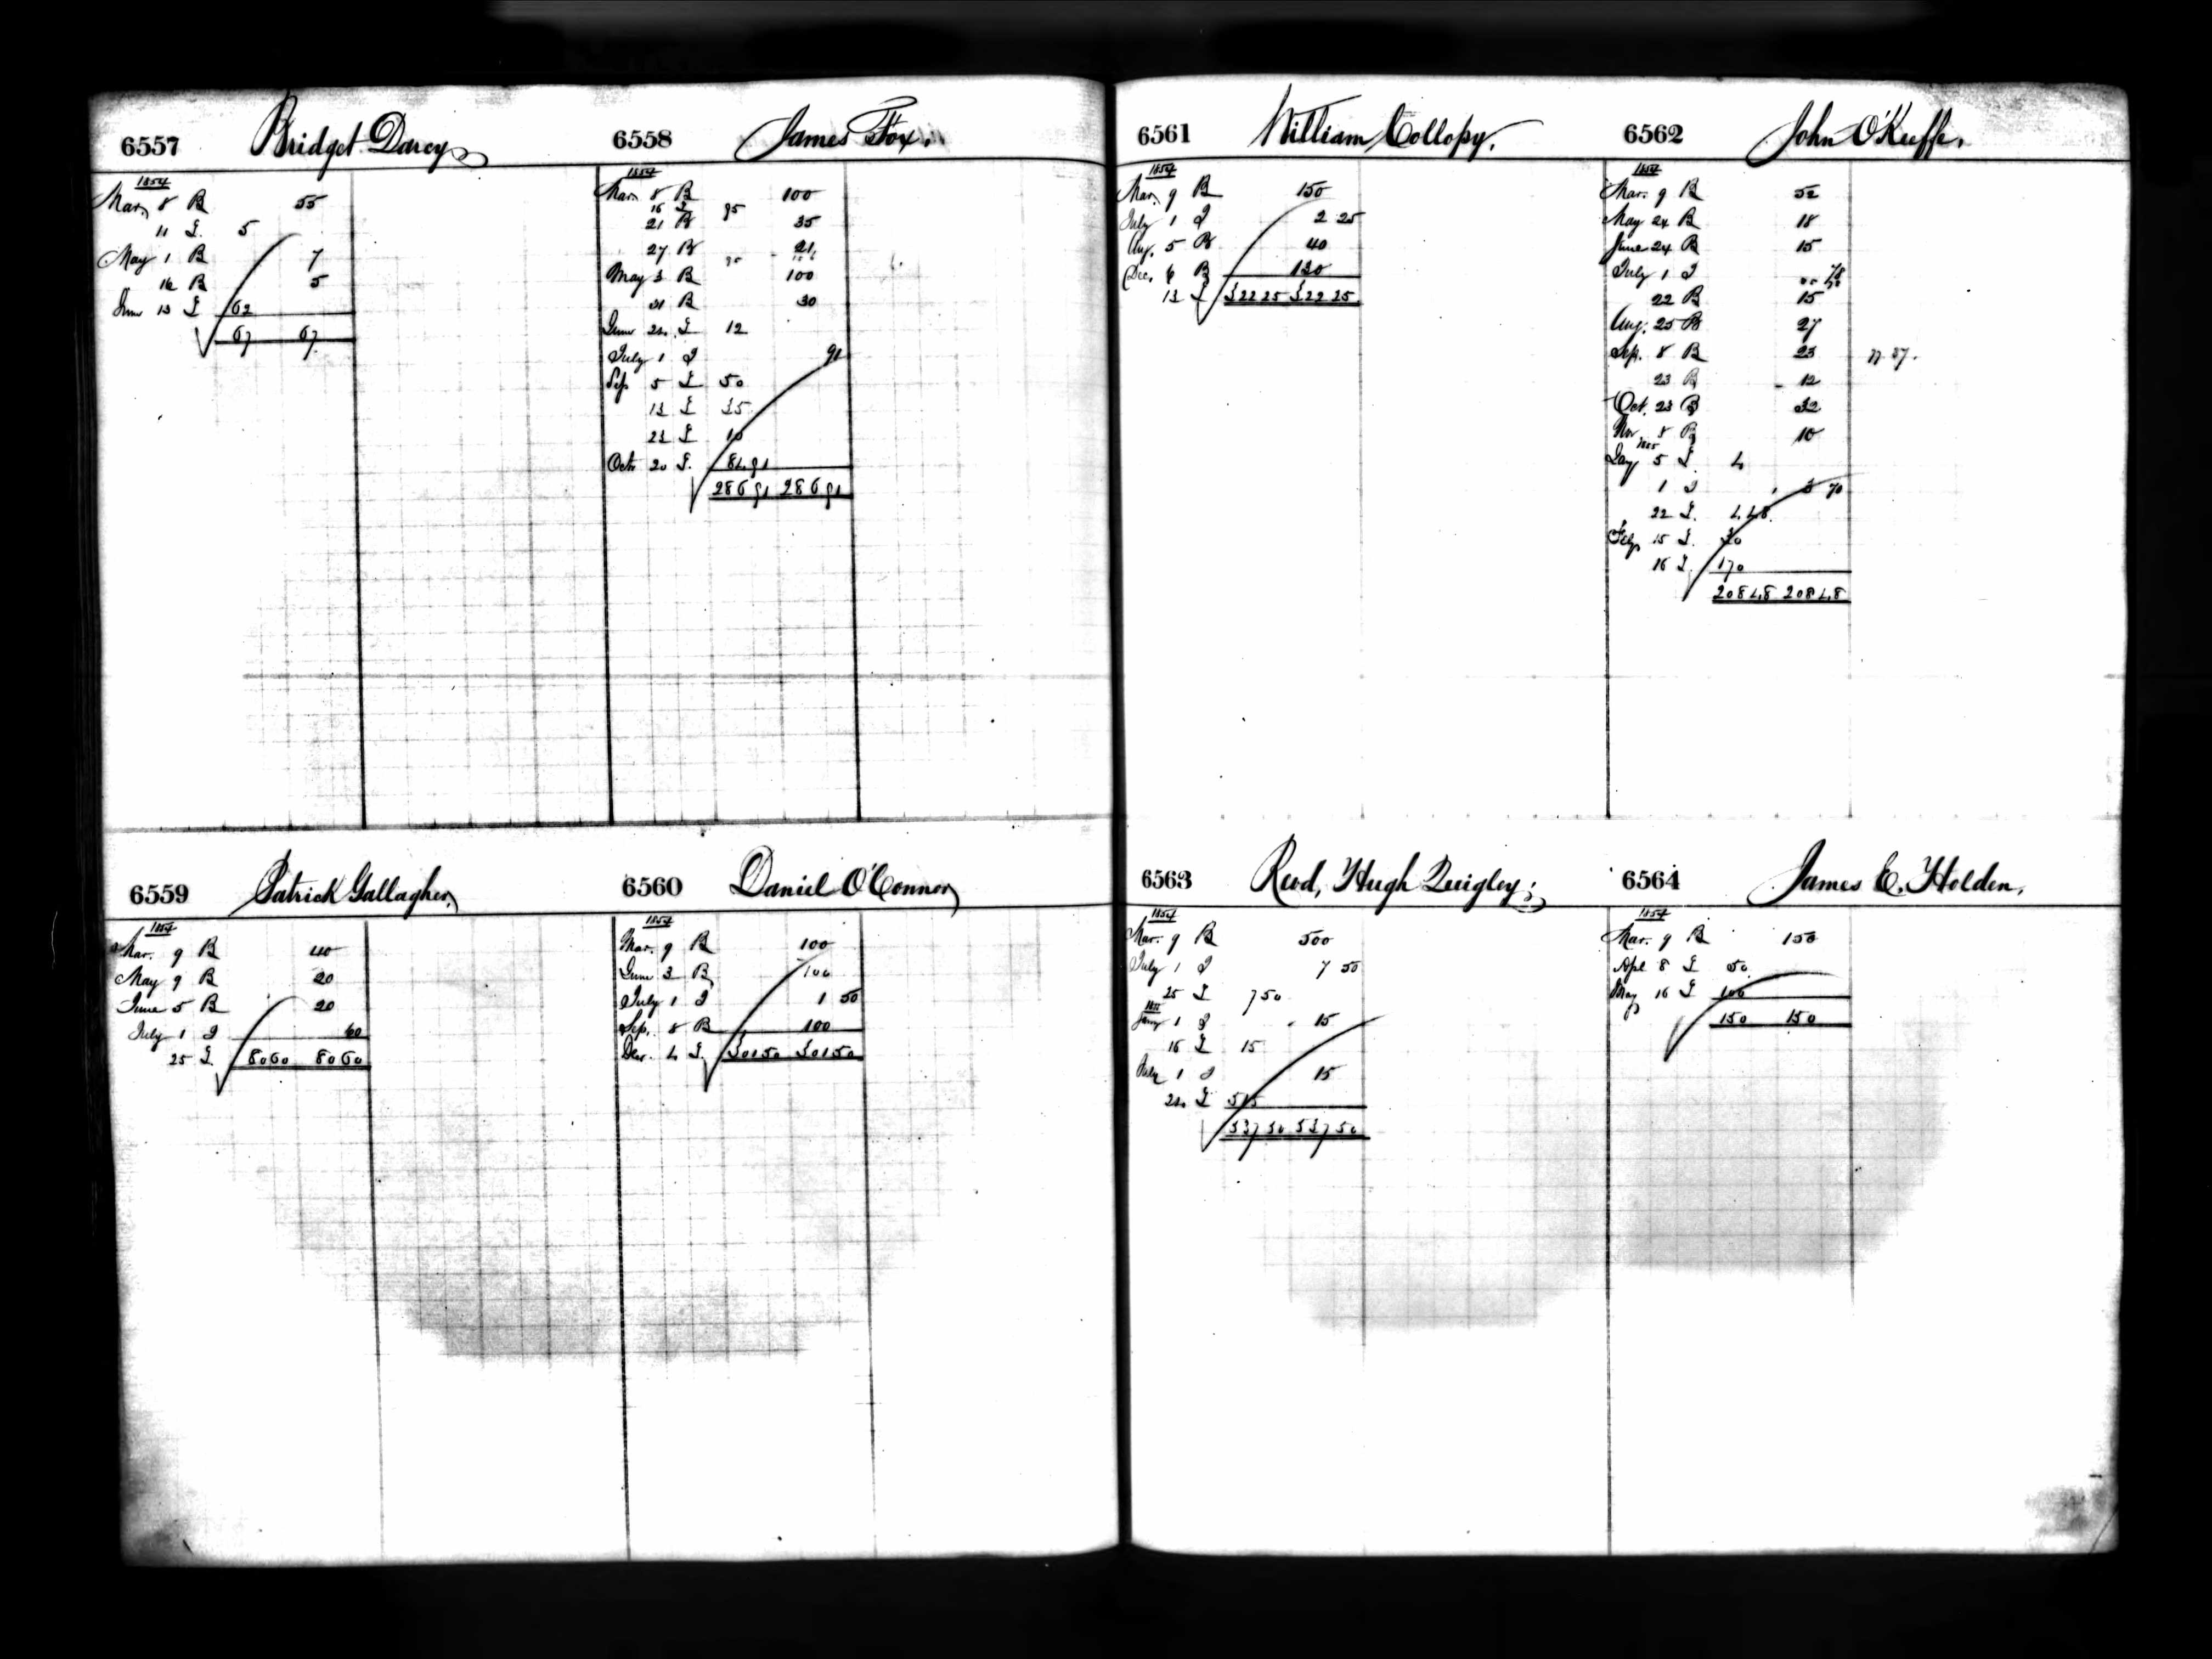 6557 Bridget Darcy
1854
Mar. 8 B 55
11 L 5
May 1 B 7
16 B 5
June 13 L 62
67 67
6558 James Fox.
1854
Mar. 8 B 100
16 L 95
21 B 35
27 B 21
May 3 B 100
31 B 30
June 24 L 12
July 1 I 91
Sep. 5 L 50
13 L 35
23 L 10
Oct. 20 L 84 91
286 91 286 91
6559 Patrick Gallagher,
1854
Mar. 9 B 40
May 9 B 20
June 5 B 20
July 1 I 60
25 L 80 60 80 60
6560 Daniel O'Connor
1854
Mar. 9 B 100
June 3 B 100
July 1 I 1 50
Sep. 8 B 100
Dec. 4 L 301 50 301 50
6561 William Collopy.
1854
Mar. 9 B 150
July 1 I 2 25
Aug. 5 B 40
Dec. 6 B 130
13 L 322 25 322 25
6562 John O'Keeffe,
1854
Mar. 9 B 52
May 24 B 18
June 24 B 15
July 1 I 78
22 B 15
Aug. 25 B 27
Sep. 8 B 23
23 B 12
Oct. 23 B 32
Nov 8 B 10
Jany 5 L 4
1 I 3 70
22 L 4 48
Feby 15 L 30
16 L 170
208 48 208 48
6563 Revd, Hugh Quigley;
1854
Mar. 9 B 500
July 1 I 7 50
25 L 7 50
Jany 1 I 15
16 L 15
July 1 I 15
24 L 515
537 50 537 50
6564 James E. Holden,
1854
Mar. 9 B 150
Apl 8 L 50
May 16 L 100
150 150